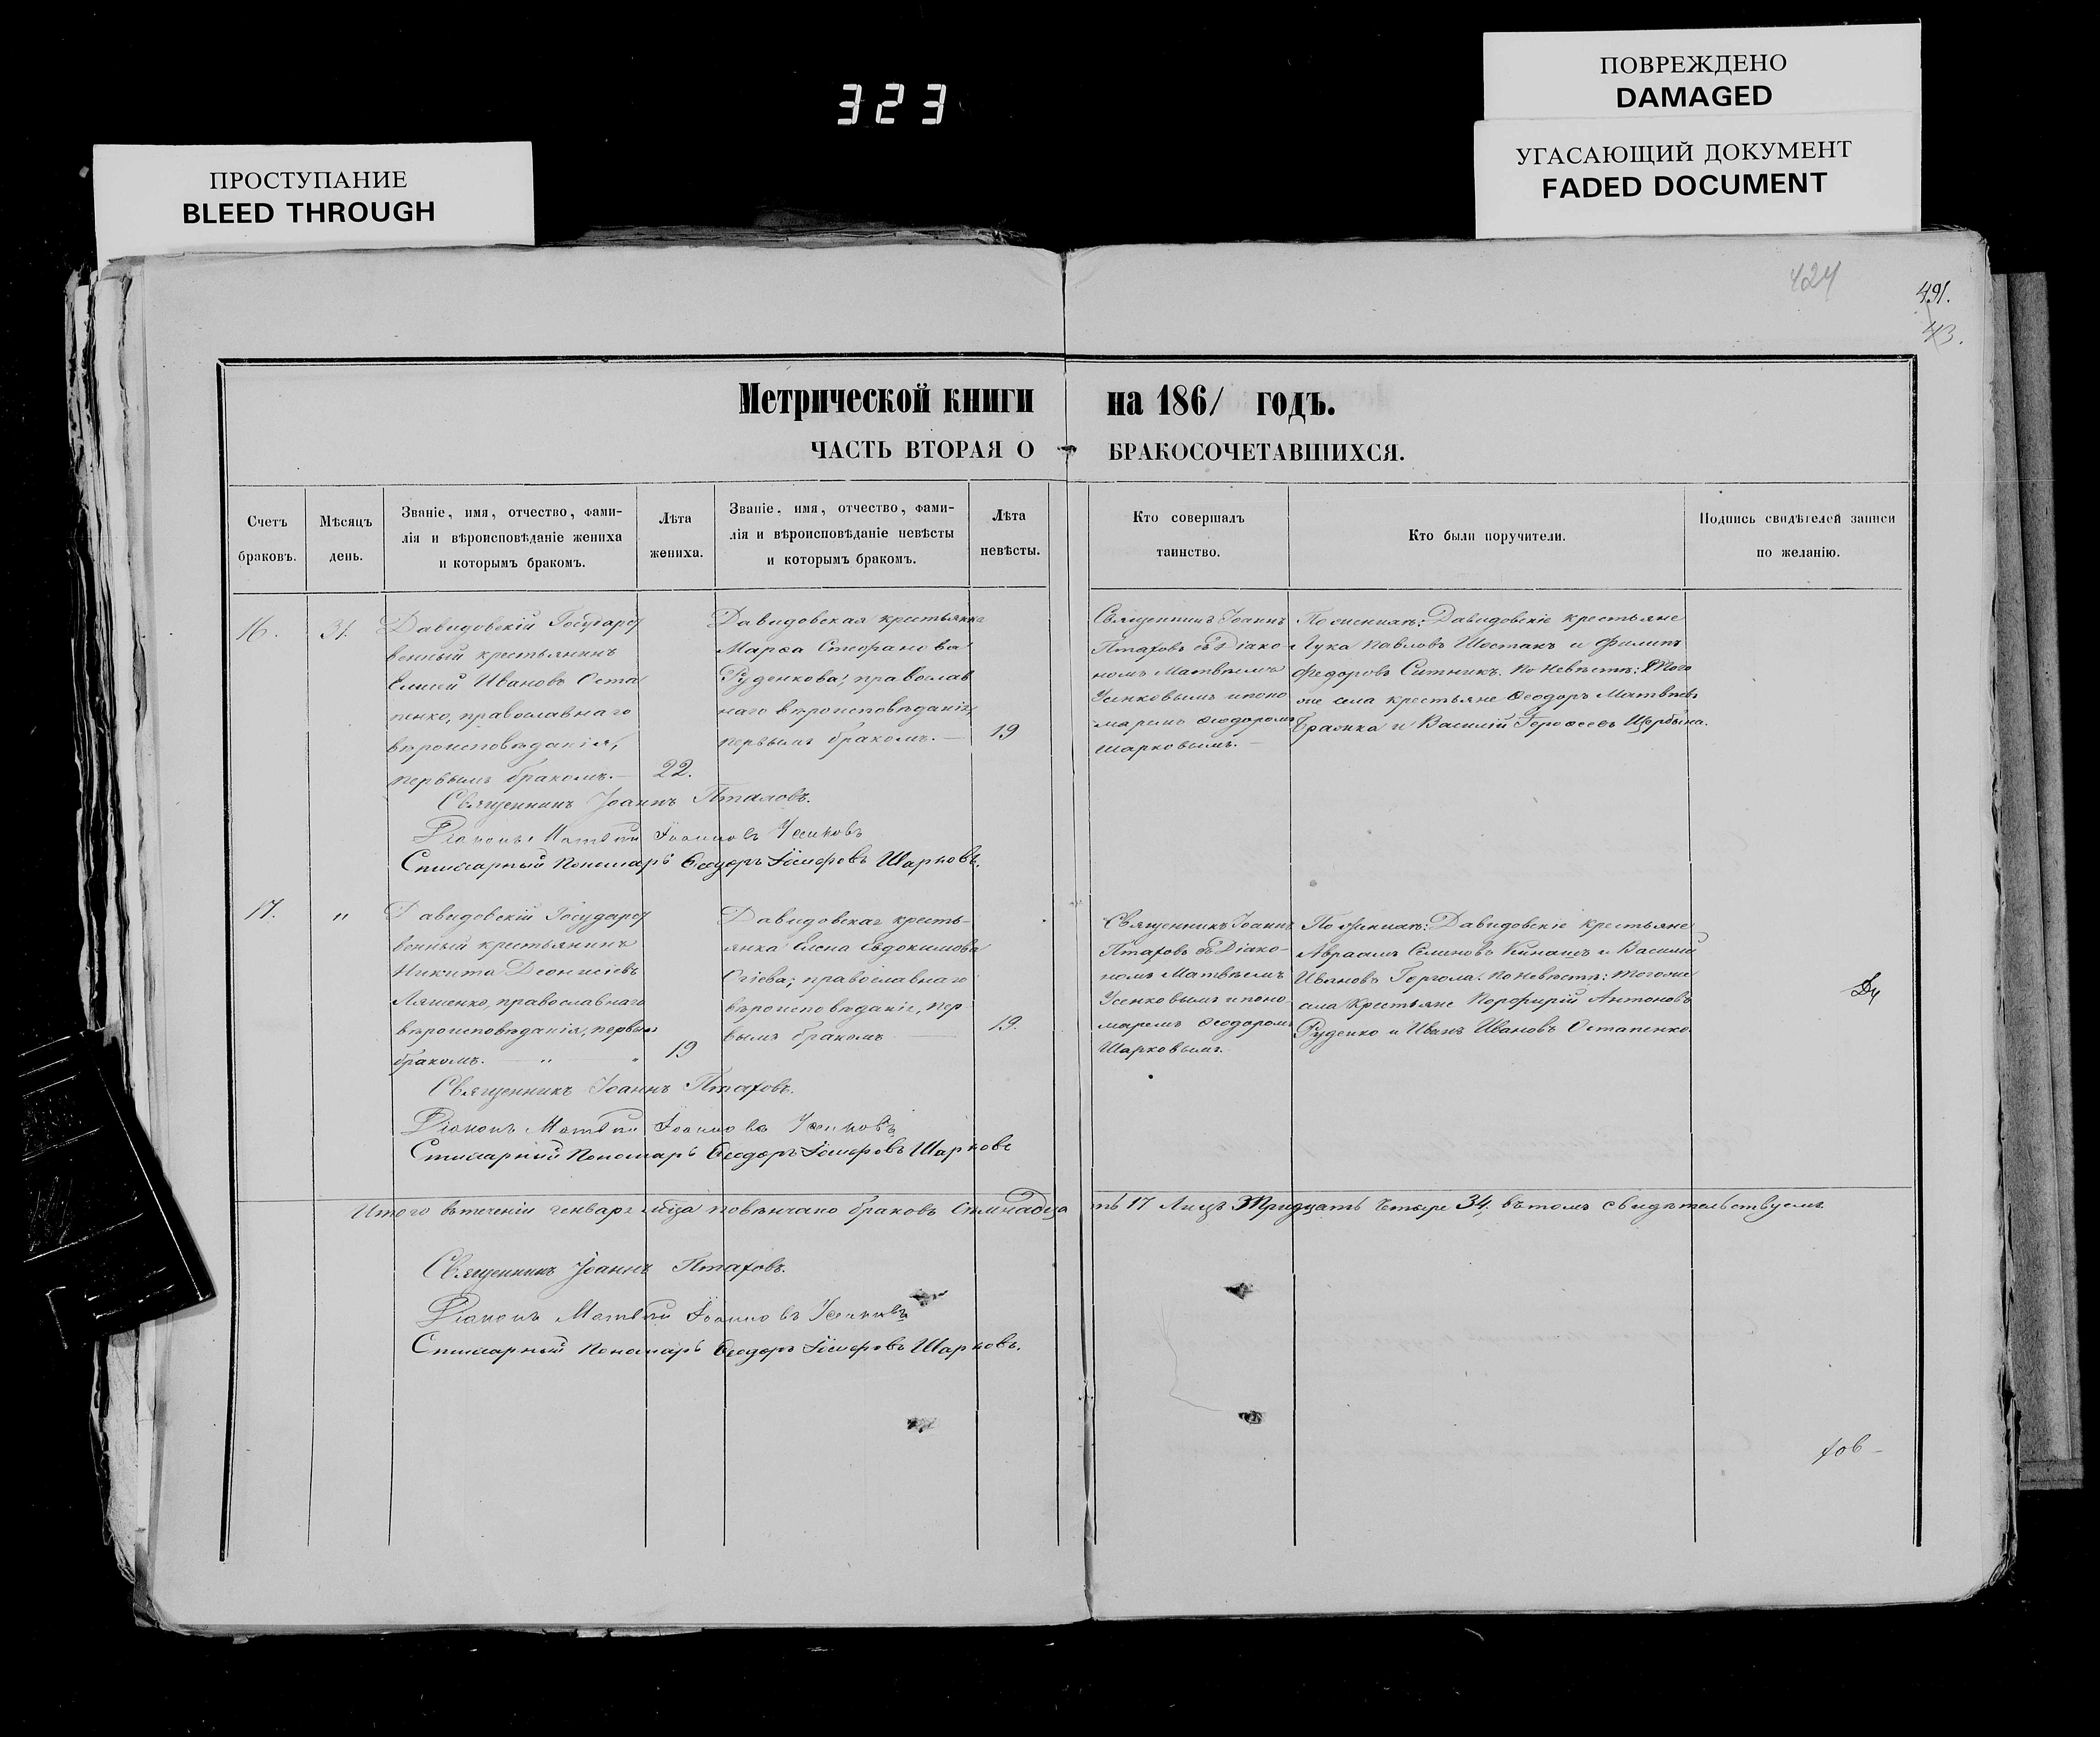 323
ПОВРЕЖДЕНО
DAMAGED
УГАСАЮЩИЙ ДОКУМЕНТ
FADED DOCUMENT
ПРОСТУПАНИЕ
BLEED THROUGH
424
491.
43.
Метрической книги на 1861 годъ.
ЧАСТЬ ВТОРАЯ О БРАКОСОЧЕТАВШИХСЯ.
Счетъ
браковъ.
Мѣсяцъ
день.
Званіе, имя, отчество, фами-
лія и вѣроисповѣданіе жениха
и которымъ бракомъ.
Лѣта
жениха.
Званіе, имя, отчество, фами-
лія и вѣроисповѣданіе невѣсты
и которымъ бракомъ.
Лѣта
невѣсты.
Кто совершалъ
таинство.
Кто были поручители.
Подпись свидѣтелей записи
по желанію.
16.
31.
Давидовскій Государст
венный крестьянинъ
Елисей Ивановъ Оста
пенко, православнаго
вѣроисповѣданія,
первымъ бракомъ.—
22.
Давидовская крестьянка
Марѳа Стефанова
Руденкова; православ
наго вѣроисповѣданія,
первымъ бракомъ.—
19
Священникъ Іоаннъ
Птаховъ съ Діако-
номъ Матвѣемъ
Усенковымъ и поно
маремъ Ѳеодоромъ
Шарковымъ.—
По женихѣ: Давидовскіе крестьяне
Лука Павловъ Шостакъ и Филипъ
Федоровъ Ситникъ. По невѣстѣ: Того
же села крестьяне Ѳеодоръ Матвѣевъ
Бражка и Василій Герасеевъ Щербина.
Священникъ Іоаннъ Птаховъ.
Діаконъ Матѳей Іоанновъ Усенковъ
Стихарный Пономарь Ѳеодоръ Іосифовъ Шарковъ.
17.
"
Давидовскій Государст
венный крестьянинъ
Никита Деонисіевъ
Ляшенко, православнаго
вѣроисповѣданія, первым
бракомъ. — " "
19
Давидовская кресть-
янка Елена Евдокимова
Огіева; православнаго
вѣроисповѣданія, пер
вымъ бракомъ —
19.
Священникъ Іоаннъ
Птаховъ съ Діако-
номъ Матвѣемъ
Усенковымъ и поно
маремъ Ѳеодоромъ
Шарковымъ.
По женихѣ: Давидовскіе крестьяне
Авраамъ Семновъ Кинашъ и Василій
Ивановъ Гергола. По невѣстѣ: того же
села крестьяне Порфирій Антоновъ
Руденко и Иванъ Ивановъ Остапенко.
Священникъ Іоаннъ Птаховъ.
Діаконъ Матѳей Іоанновъ Усенковъ
Стихарный Пономарь Ѳеодоръ Іосифовъ Шарковъ
Итого въ теченіи генваря мѣца повѣнчано браковъ Семнадца ть 17 Лицъ Тридцать Четыре 34, въ томъ свидѣтельствуемъ
Священникъ Іоаннъ Птаховъ.
Діаконъ Матѳей Іоанновъ Усенковъ
Стихарный Пономарь Ѳеодоръ Іосифовъ Шарковъ.